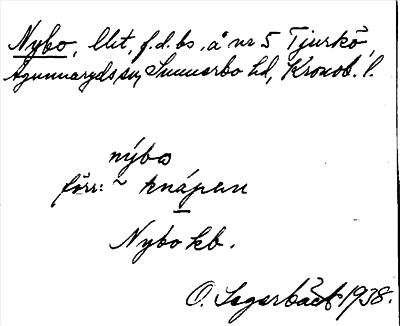 Nybo, lht, f.d. bs, å nr 5 Tjurkö,
Agunnaryds sn, Sunnerbo hd, Kronob. l.
nýbo
förr: ~ knápen
Nybo kb.
O. Segerbäck 1938.